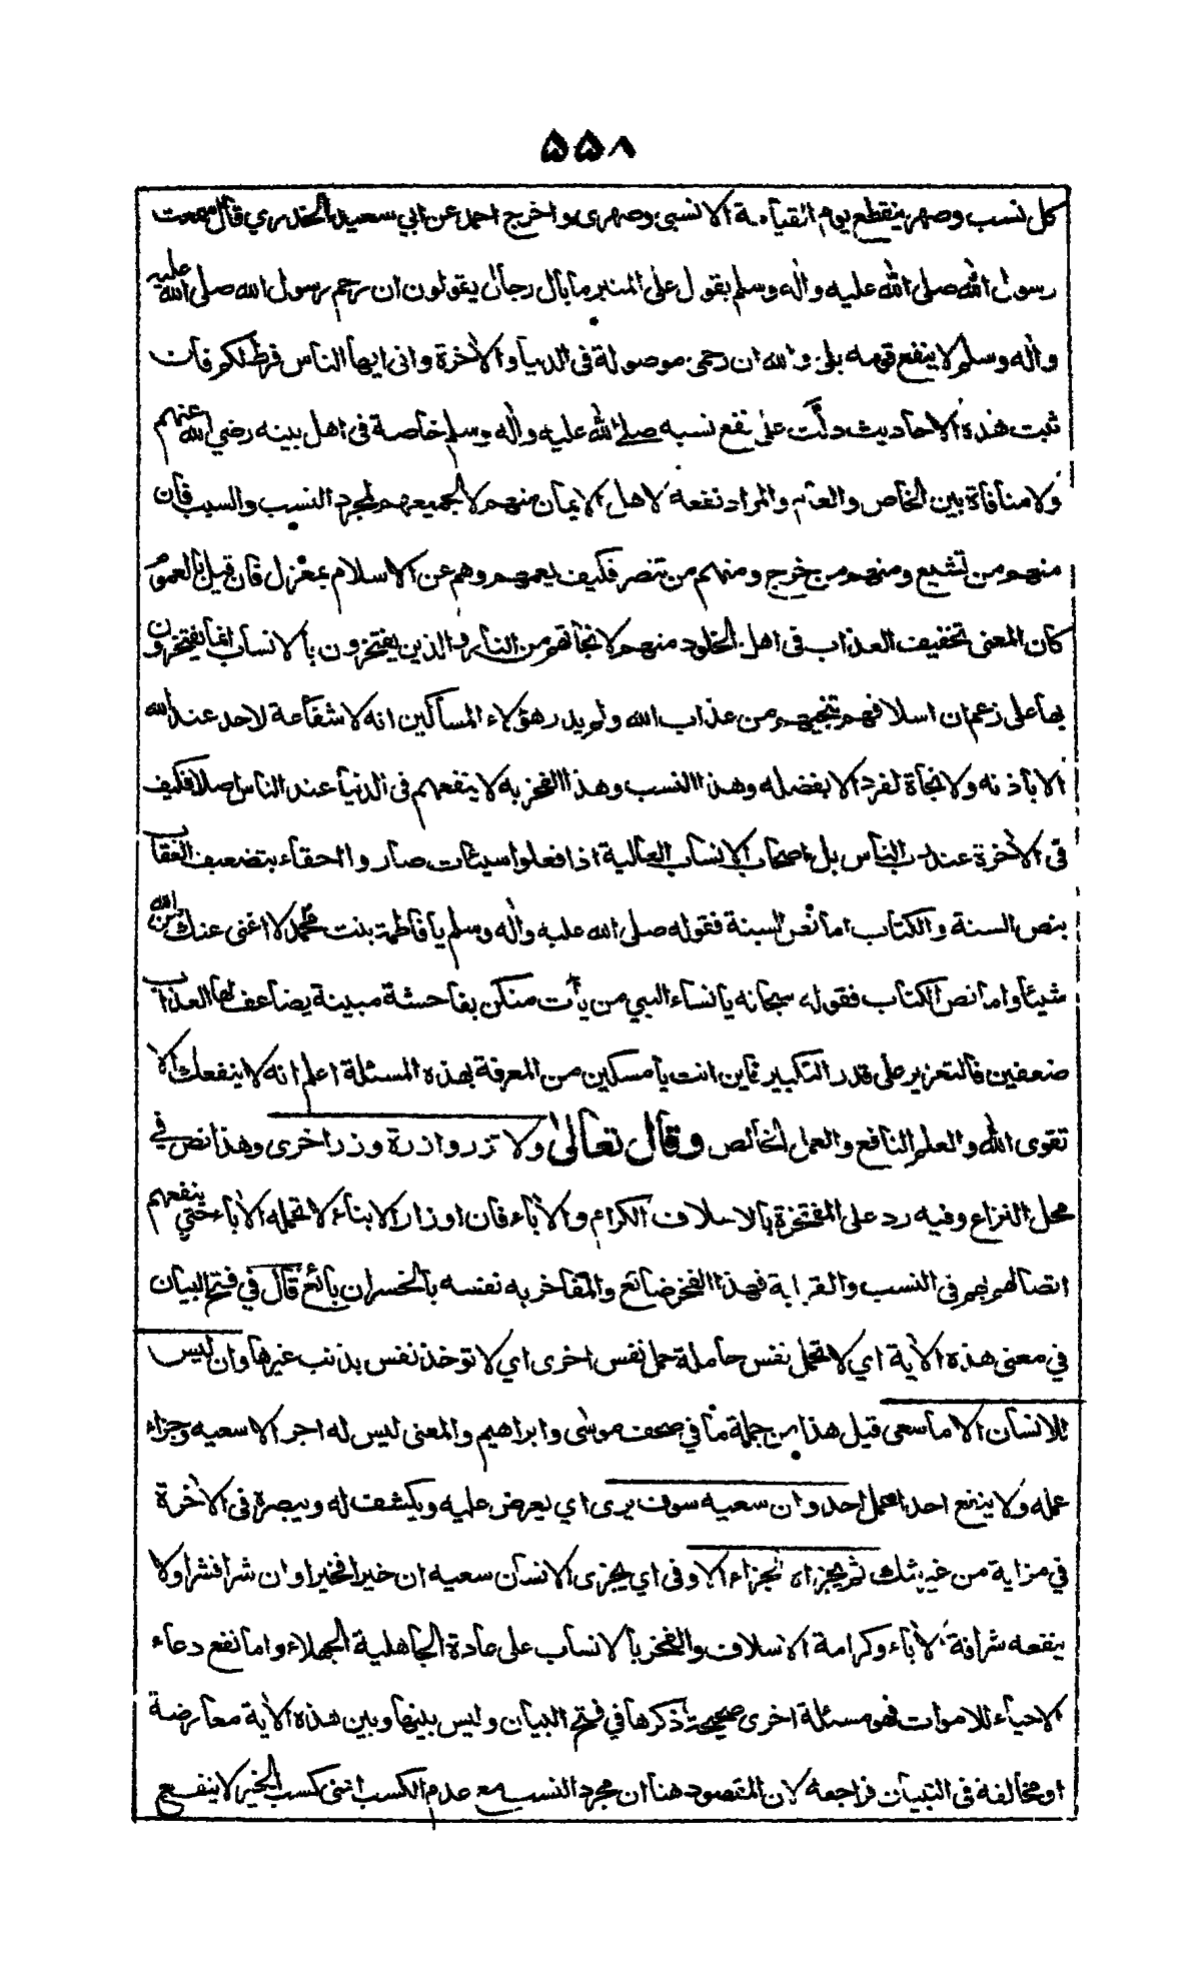 ۵۵۸
كل نسب وصهر ينقطع يوم القيامة الا نسبي وصهري واخرج احمد عن ابي سعيد الخدري قال سمعت
رسول الله صلى الله عليه واله وسلم يقول على المنبر ما بال رجال يقولون ان رحم رسول الله صلى الله عليه
واله وسلم لا ينفع قومه بلى والله ان رحمى موصولة في الدنيا والاخرة وانى ايها الناس فرط لكم فان
ثبت هذه الاحاديث دلت على نفع نسبه صلى الله عليه واله وسلم خاصة في اهل بيته رضي الله عنهم
ولا منافاة بين الخاص والعام والمراد نفعه لاهل الايمان منهم لا لجميعهم لمجرد النسب والسبب فان
منهم من تشيع ومنهم من خرج ومنهم من تنصر فكيف يعمهم وهم عن الاسلام بمعزل فان قيل بالعموم
كان المعنى تخفيف العذاب في اهل الخلود منهم لا نجاتهم من النار والذين يفتخرون بالانساب انما يفتخرون
بها على زعم ان اسلافهم تنجيهم من عذاب الله ولم يدر هؤلاء المساكين انه لا شفاعة لاحد عند الله
الا باذنه ولا نجاة لفرد الا بفضله وهذا النسب وهذا الفخر به لا ينفعهم في الدنيا عند الناس اصلا فكيف
في الاخرة عند رب الناس بل اصحاب الانساب العالية اذا فعلوا سيئات صاروا احقاء بتضعيف العقاب
بنص السنة والكتاب اما نص السنة فقوله صلى الله عليه واله وسلم يا فاطمة بنت محمد لا اغنى عنك من الله
شيئا واما نص الكتاب فقوله سبحانه يا نساء النبي من يأت منكن بفاحشة مبينة يضاعف لها العذاب
ضعفين فالتعزير على قدر التكبير فاين انت يا مسكين من المعرفة بهذه المسئلة اعلم انه لا ينفعك الا
تقوى الله والعلم النافع والعمل الخالص وقال تعالى ولا تزر وازرة وزر اخرى وهذا نص في
محل النزاع وفيه رد على المفتخرة بالاسلاف الكرام والاباء فان اوزار الابناء لا تحمله الاباء حتى ينفعهم
اتصالهم بهم في النسب والقرابة فهذا الفخر ضائع والمفاخر به نفسه بالخسران بائع قال في فتح البيان
في معنى هذه الاية اي لا تحمل نفس حاملة حمل نفس اخرى اي لا توخذ نفس بذنب غيرها وان ليس
للانسان الا ما سعى قيل هذا من جملة ما في صحف موسى وابراهيم والمعنى ليس له اجر الا سعيه وجزاء
عمله ولا ينفع احدا عمل احد وان سعيه سوف يرى اي يعرض عليه ويكشف له ويبصره في الاخرة
في مزاية من غير شك ثم يجزاه الجزاء الاوفى اي يجزى الانسان سعيه ان خيرا فخيرا وان شرا فشرا ولا
ينفعه شرافة الاباء وكرامة الاسلاف والفخر بالانساب على عادة الجاهلية الجهلاء واما نفع دعاء
الاحياء للاموات فهو مسئلة اخرى صحيحة ذكرها في فتح البيان وليس بينها وبين هذه الاية معارضة
او مخالفة في التبيان فراجعه لان المقصود هنا ان مجرد النسب مع عدم الكسب اعنى كسب الخير لا ينفع